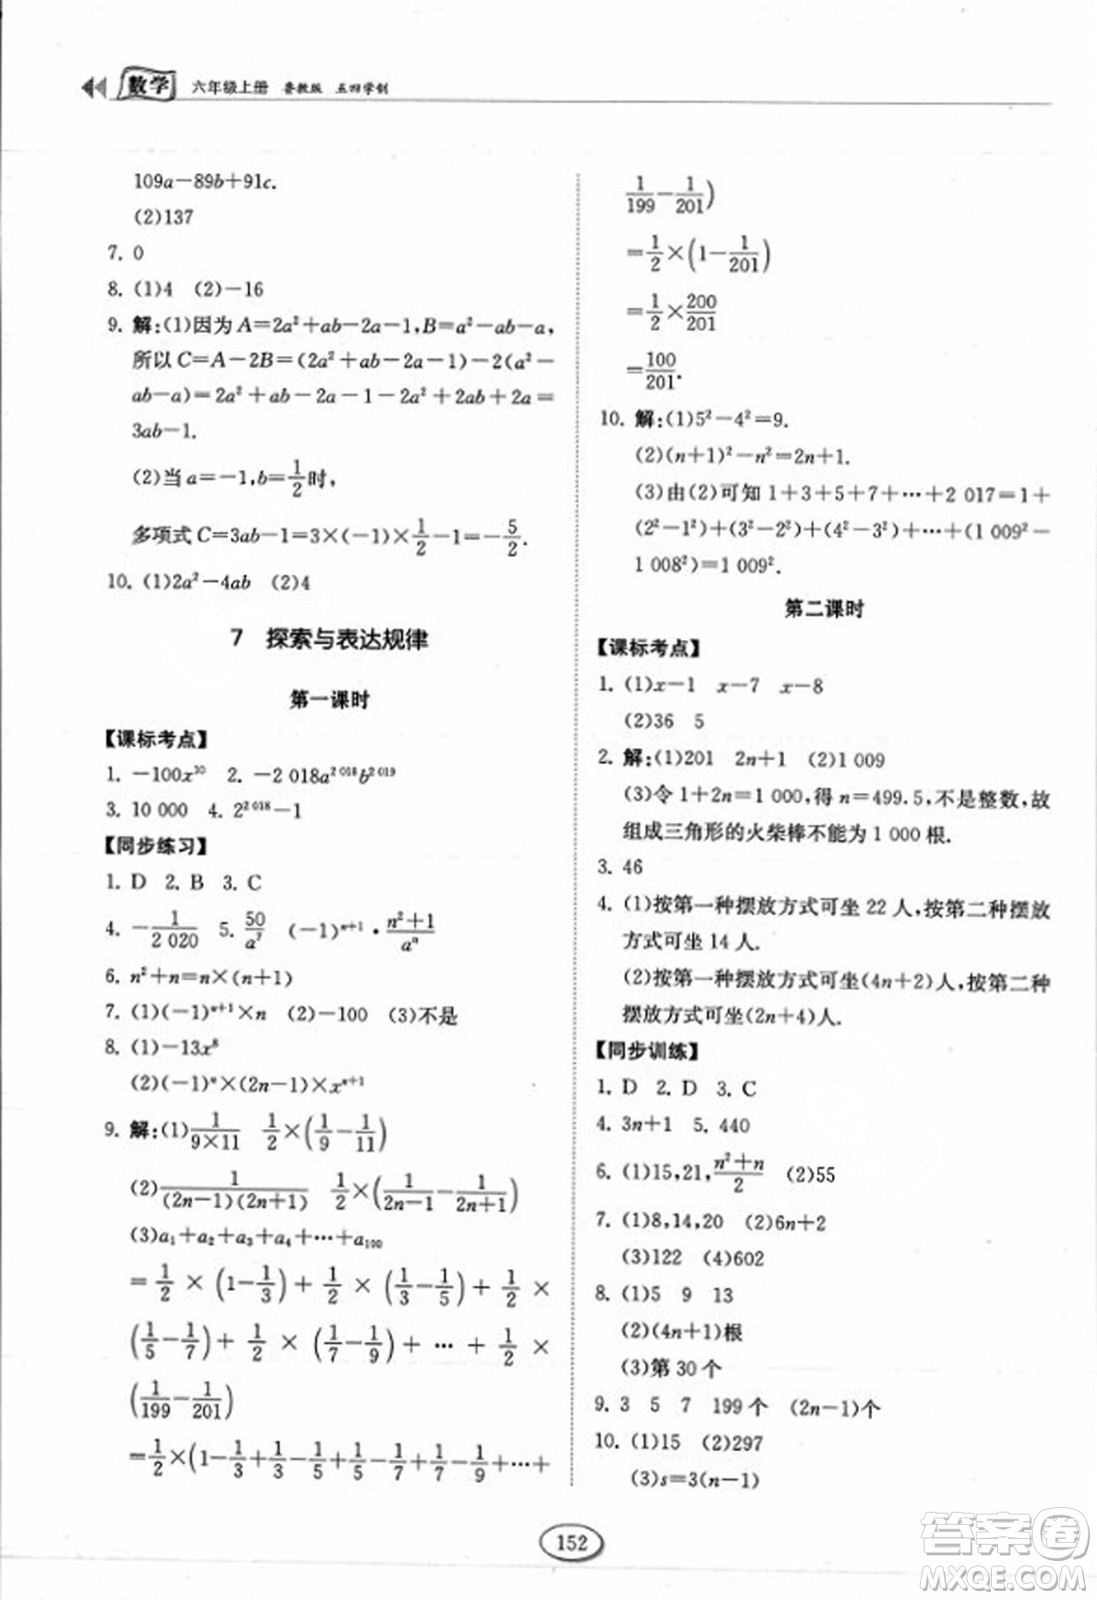 数学 六年级上册 鲁教版 五四学制
109a－89b＋91c.
(2)137
7. 0
8. (1)4 (2)－16
9. 解:(1)因为 A＝2a²＋ab－2a－1,B＝a²－ab－a,
所以 C＝A－2B＝(2a²＋ab－2a－1)－2(a²－
ab－a)＝2a²＋ab－2a－1－2a²＋2ab＋2a＝
3ab－1.
(2)当 a＝－1,b＝1/2时,
多项式 C＝3ab－1＝3×(－1)×1/2－1＝－5/2.
10. (1)2a²－4ab (2)4
7 探索与表达规律
第一课时
【课标考点】
1. －100x¹⁰ 2. －2 018a^{2 018}b^{2 019}
3. 10 000 4. 2^{2 018}－1
【同步练习】
1. D 2. B 3. C
4. －1/2 020 5. 50/a⁷ (－1)^{n+1}·(n²＋1)/aⁿ
6. n²＋n＝n×(n＋1)
7. (1)(－1)^{n+1}×n (2)－100 (3)不是
8. (1)－13x⁸
(2)(－1)ⁿ×(2n－1)×x^{n+1}
9. 解:(1)1/(9×11) 1/2×(1/9－1/11)
(2)1/((2n－1)(2n＋1)) 1/2×(1/(2n－1)－1/(2n＋1))
(3)a₁＋a₂＋a₃＋a₄＋…＋a₁₀₀
＝1/2×(1－1/3)＋1/2×(1/3－1/5)＋1/2×
(1/5－1/7)＋1/2×(1/7－1/9)＋…＋1/2×
(1/199－1/201)
＝1/2×(1－1/3＋1/3－1/5＋1/5－1/7＋1/7－1/9＋…＋
1/199－1/201)
＝1/2×(1－1/201)
＝1/2×200/201
＝100/201.
10. 解:(1)5²－4²＝9.
(2)(n＋1)²－n²＝2n＋1.
(3)由(2)可知 1＋3＋5＋7＋…＋2 017＝1＋
(2²－1²)＋(3²－2²)＋(4²－3²)＋…＋(1 009²－
1 008²)＝1 009².
第二课时
【课标考点】
1. (1)x－1 x－7 x－8
(2)36 5
2. 解:(1)201 2n＋1 (2)1 009
(3)令 1＋2n＝1 000,得 n＝499.5,不是整数,故
组成三角形的火柴棒不能为 1 000 根.
3. 46
4. (1)按第一种摆放方式可坐 22 人,按第二种摆放
方式可坐 14 人.
(2)按第一种摆放方式可坐(4n＋2)人,按第二种
摆放方式可坐(2n＋4)人.
【同步训练】
1. D 2. D 3. C
4. 3n＋1 5. 440
6. (1)15,21,(n²＋n)/2 (2)55
7. (1)8,14,20 (2)6n＋2
(3)122 (4)602
8. (1)5 9 13
(2)(4n＋1)根
(3)第 30 个
9. 3 5 7 199 个 (2n－1)个
10. (1)15 (2)297
(3)s＝3(n－1)
152
答案圈
MXQE.COM